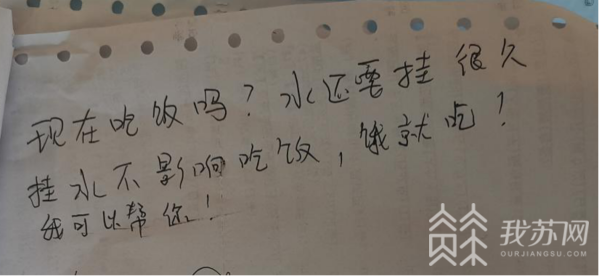 现在吃饭吗？水还要挂很久
挂水不影响吃饭，饿就吃！
我可以帮你！
我苏网
OURJIANGSU.COM